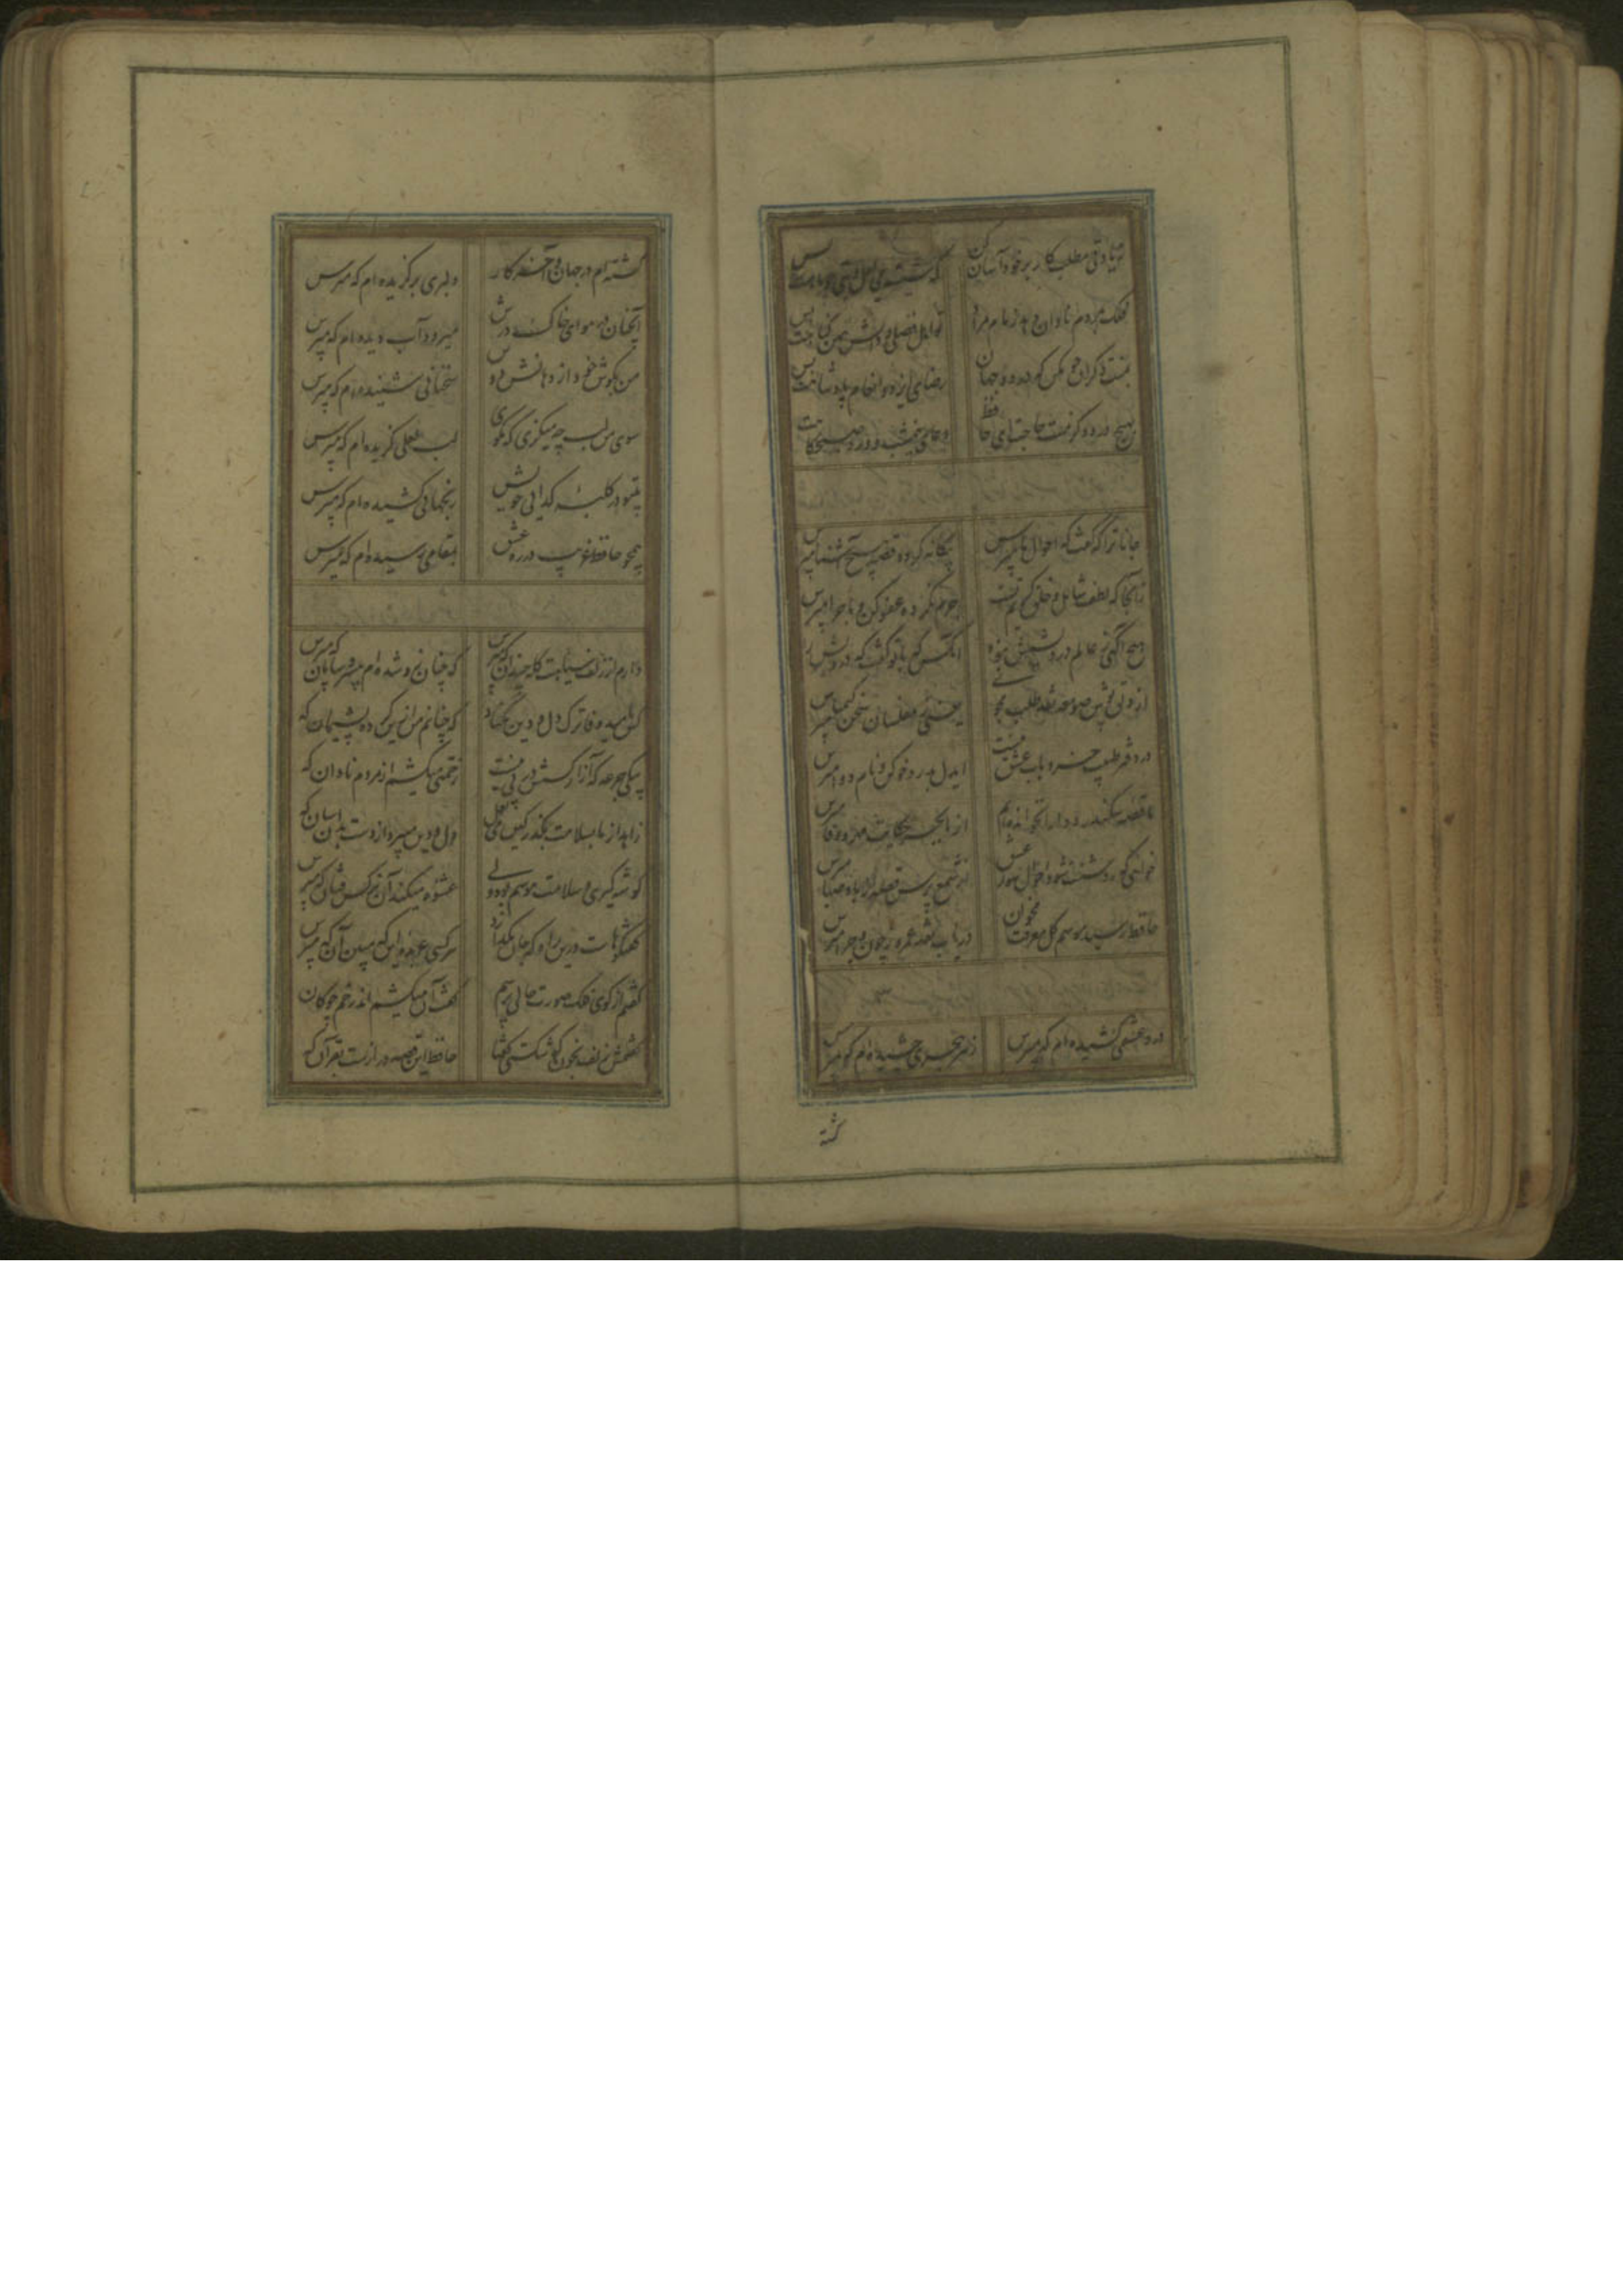 زیادتی مطلب کار بر خود آسان کن که شیشه می لعل و بتی چو ماهت بس
فلک بمردم نادان دهد زمام مراد تو اهل فضلی و دانش همین گناهت بس
بمنت دگران خو مکن که در دو جهان رضای ایزد و انعام پادشاهت بس
بهیچ ورد دگر نیست حاجت ای حافظ دعای نیمشب و ورد صبحگاهت بس
جانا ترا که گفت که احوال ما مپرس بیگانه گرد و قصه هیچ آشنا مپرس
زانجا که لطف شامل و خلق کریم تست جرم نکرده عفو کن و ماجرا مپرس
هیچ آگهی ز عالم درویشیش نبود آنکس که با تو گفت که درویش را مپرس
از دلق پوش صومعه نقد طلب مجوی یعنی ز مفلسان سخن کیمیا مپرس
در دفتر طبیب خرد باب عشق نیست ای دل بدرد خو کن و نام دوا مپرس
ما قصه سکندر و دارا نخوانده ایم از ما بجز حکایت مهر و وفا مپرس
خواهی که روشنت شود احوال سوز عشق از شمع پرس قصه ز باد صبا مپرس
حافظ رسید موسم گل معرفت مخوان دریاب نقد عمر و ز چون و چرا مپرس
درد عشقی کشیده ام که مپرس زهر هجری چشیده ام که مپرس
گشته
گشته ام در جهان و آخر کار دلبری برگزیده ام که مپرس
آنچنان در هوای خاک درش میرود آب دیده ام که مپرس
من بگوش خود از دهانش دوش سخنانی شنیده ام که مپرس
سوی من لب چه میگزی که مگوی لب لعلی گزیده ام که مپرس
بیتو در کلبه گدائی خویش رنجهائی کشیده ام که مپرس
همچو حافظ غریب در ره عشق بمقامی رسیده ام که مپرس
دارم از زلف سیاهت گله چندان که مپرس که چنان زو شده ام بی سر و سامان که مپرس
کس بامید وفا ترک دل و دین مکناد که چنانم من ازین کرده پشیمان که
بیکی جرعه که آزار کسش در پی نیست زحمتی میکشم از مردم نادان که
زاهد از ما بسلامت بگذر کین می لعل دل و دین میبرد از دست بدانسان که
گوشه گیری و سلامت هوسم بود ولی عشوه میکند آن نرگس فتان که مپرس
گفتگوهاست درین راه که جان بگدازد هر کسی عربده این که مبین آن که مپرس
گفتم از گوی فلک صورت حالی پرسم گفت آن میکشم اندر خم چوگان
گفتمش زلف بخون که شکستی گفتا حافظ این قصه درازست بقرآن که